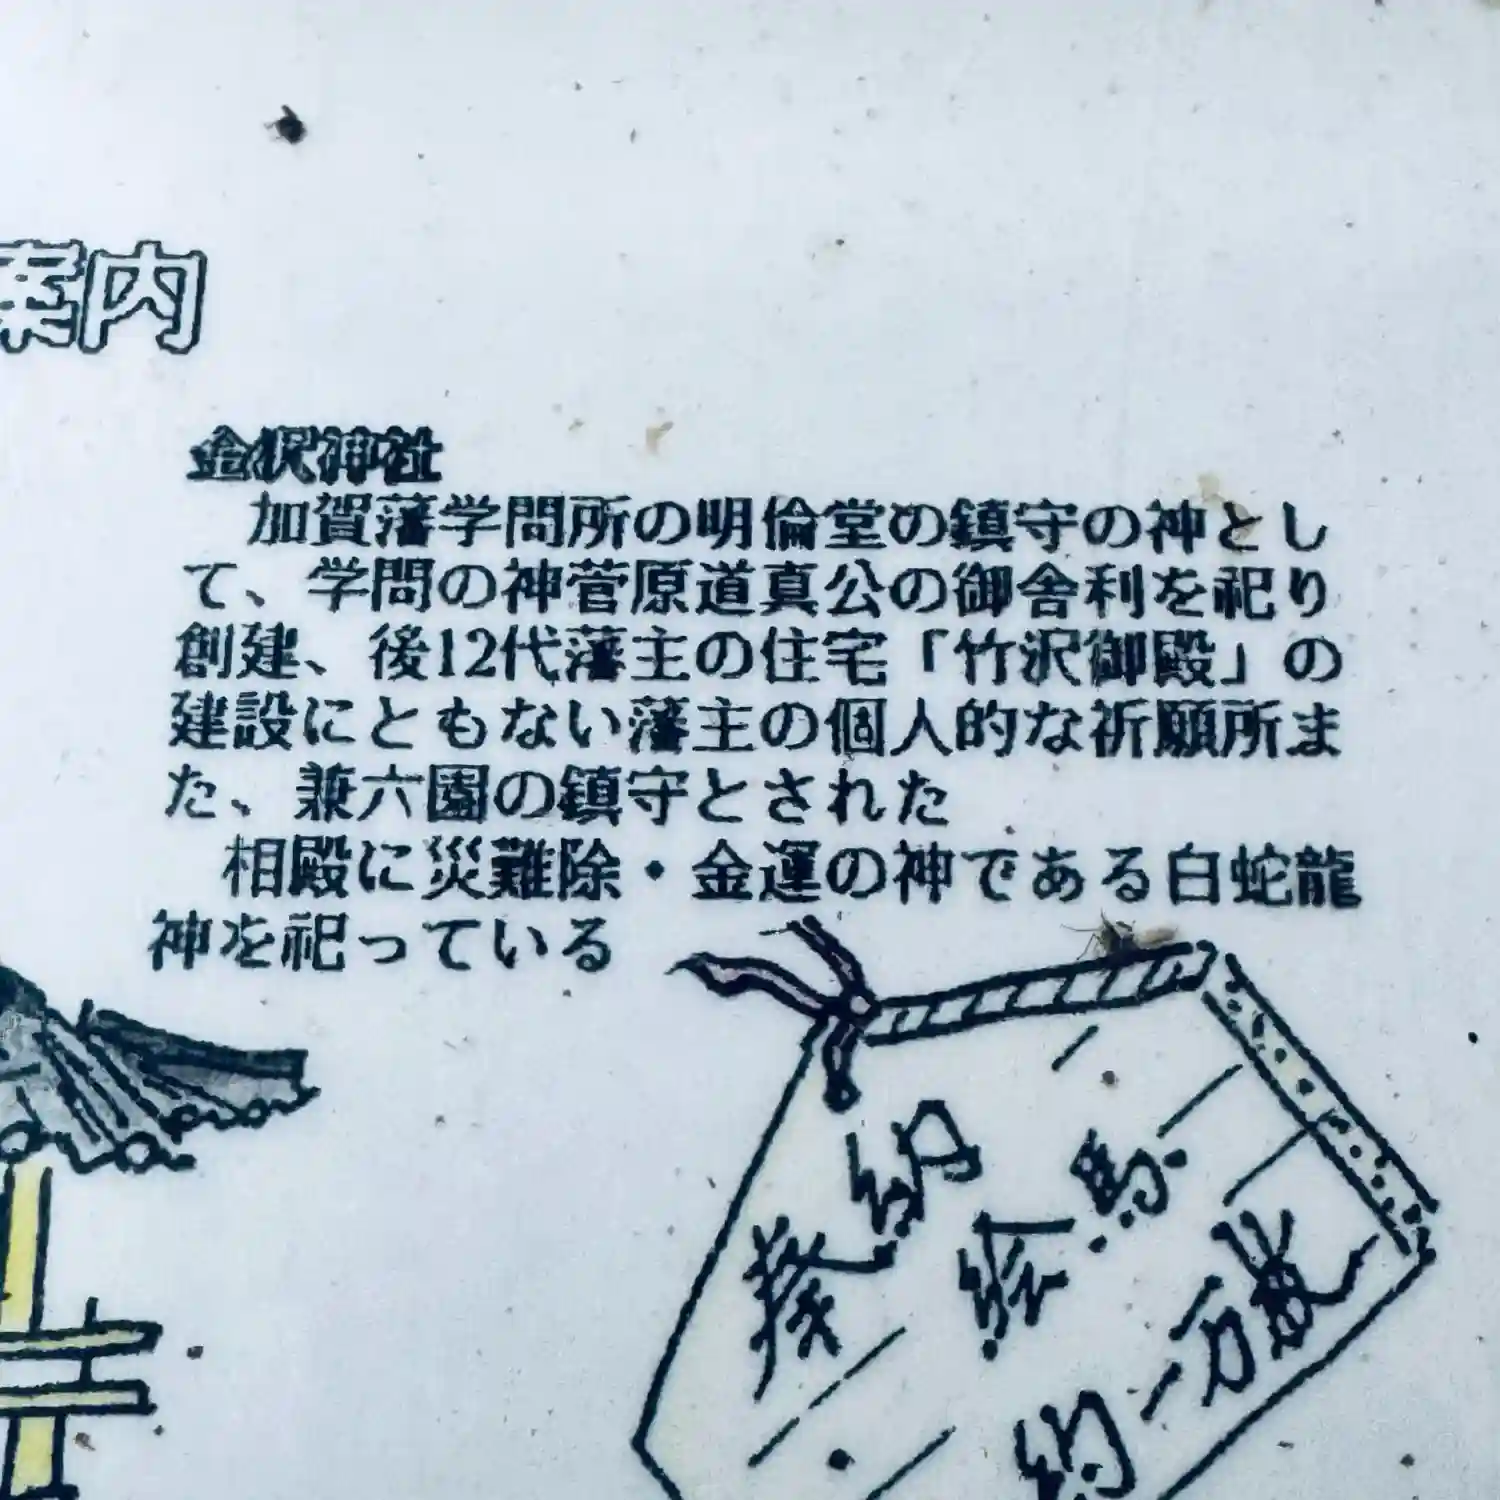 案内
金沢神社
加賀藩学問所の明倫堂の鎮守の神とし
て、学問の神菅原道真公の御舎利を祀り
創建、後12代藩主の住宅「竹沢御殿」の
建設にともない藩主の個人的な祈願所ま
た、兼六園の鎮守とされた
相殿に災難除・金運の神である白蛇龍
神を祀っている
奉納
絵馬
約一万枚